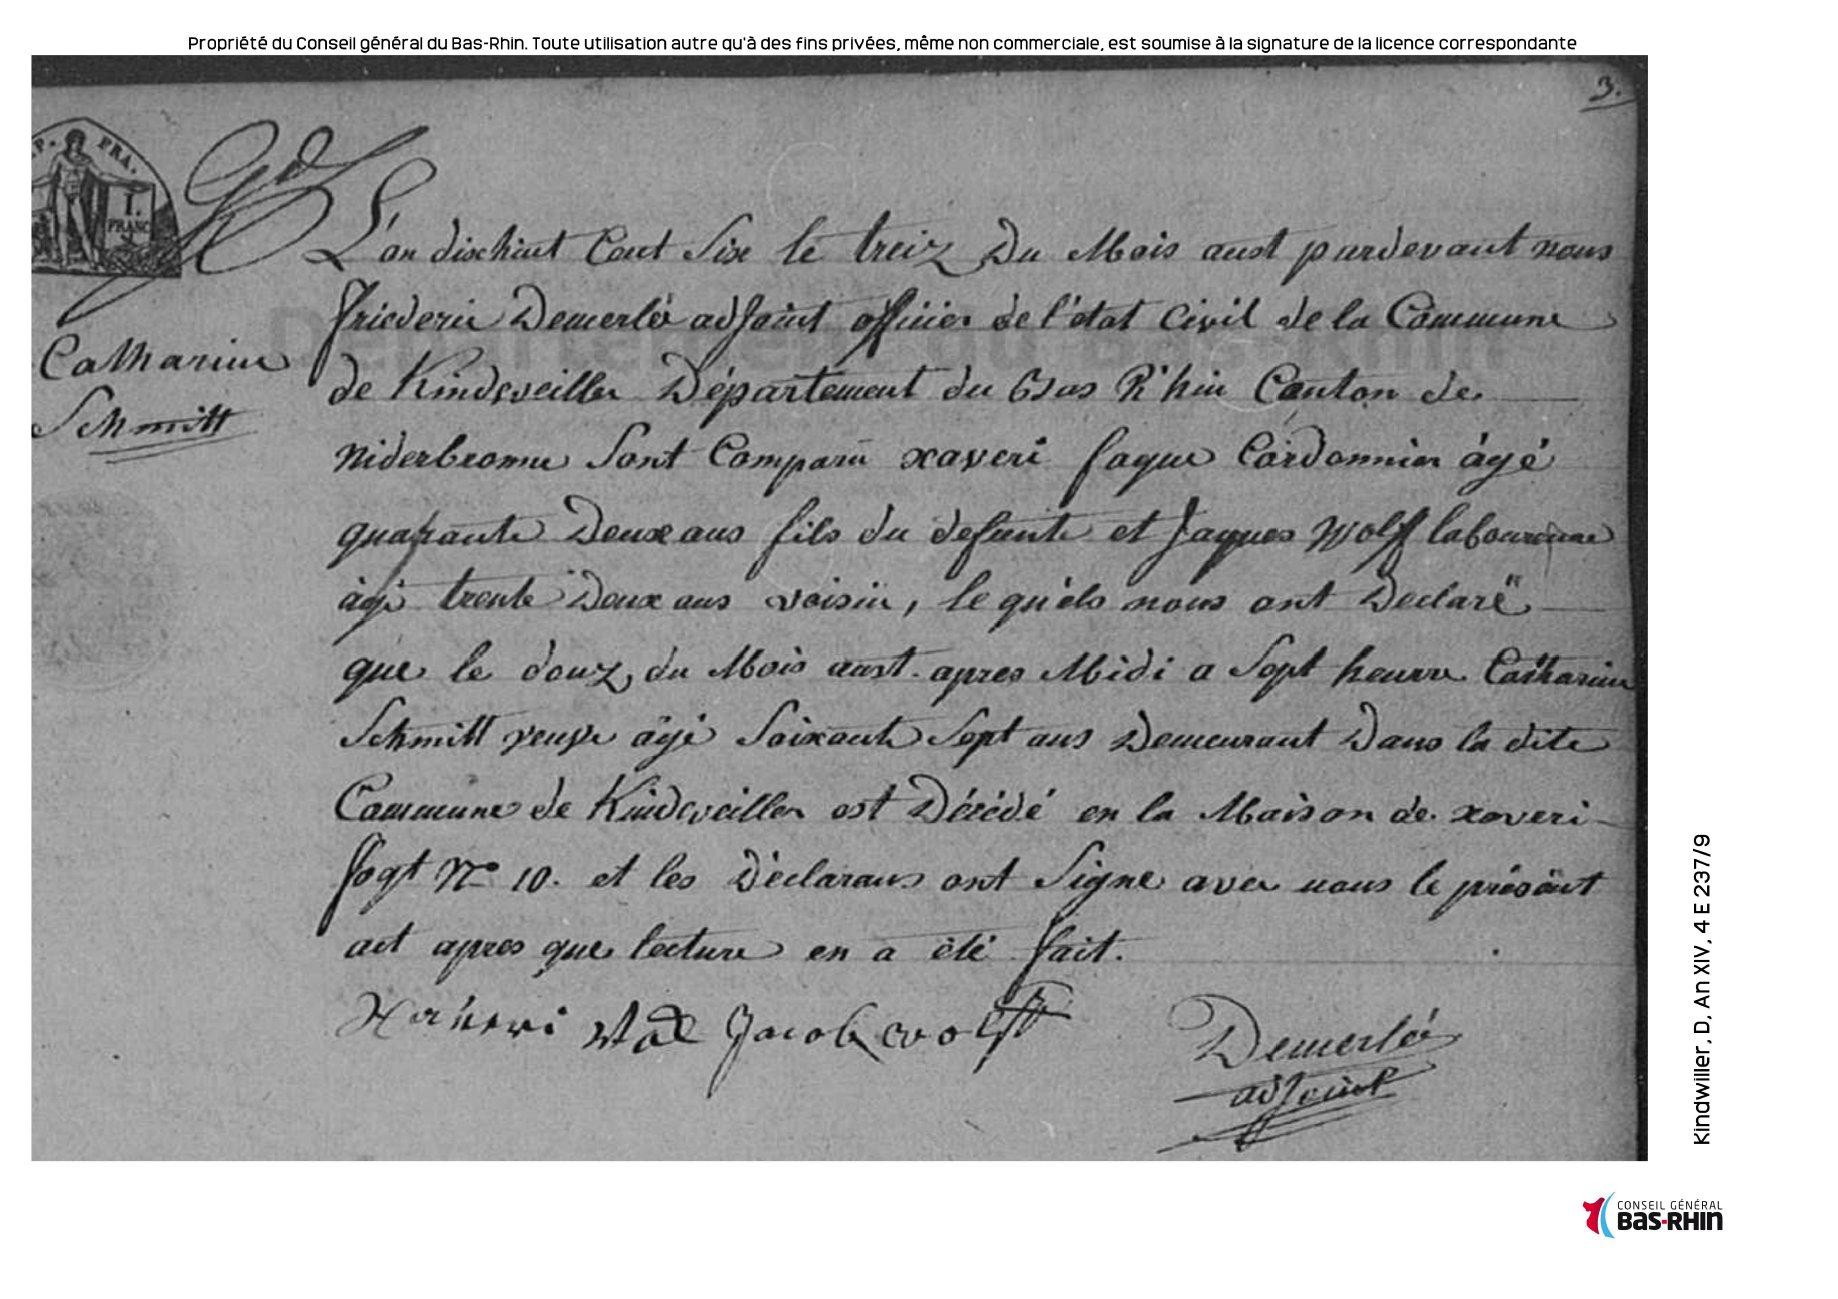 Propriété du Conseil général du Bas-Rhin. Toute utilisation autre qu'à des fins privées, même non commerciale, est soumise à la signature de la licence correspondante
3.
FRA.
1.
FRANC
L'an dixhiut Cent Six le treiz du Mois aust pardevant nous
friederic Demerlé adjoint officier de l'état Civil de la Commune
Catharine
de Kindsveiller Département du Bas R'hin Canton de
Schmitt
Niderbronne Sont Comparu xaveri faque Cordonnier âgé
quarante Deux ans fils du defunte et Jaques Wolff laboureure
âgé trente Deux ans voisin, le quéls nous ont Declaré
que le douz du Mois aust apres Midi a Sept heurre Catharine
Schmitt veuve âgé Soixante Sept ans Demeurant Dans la dite
Commune de Kindsveiller est Décédé en la Maison de xaveri
fogt No 10. et les Déclarans ont Signe avec nous le présent
act apres que lecture en a été fait.
Xaveri Jacob wolff
Demerlé
adjoint
Kindwiller, D, An XIV, 4 E 237/9
CONSEIL GÉNÉRAL
BAS-RHIN